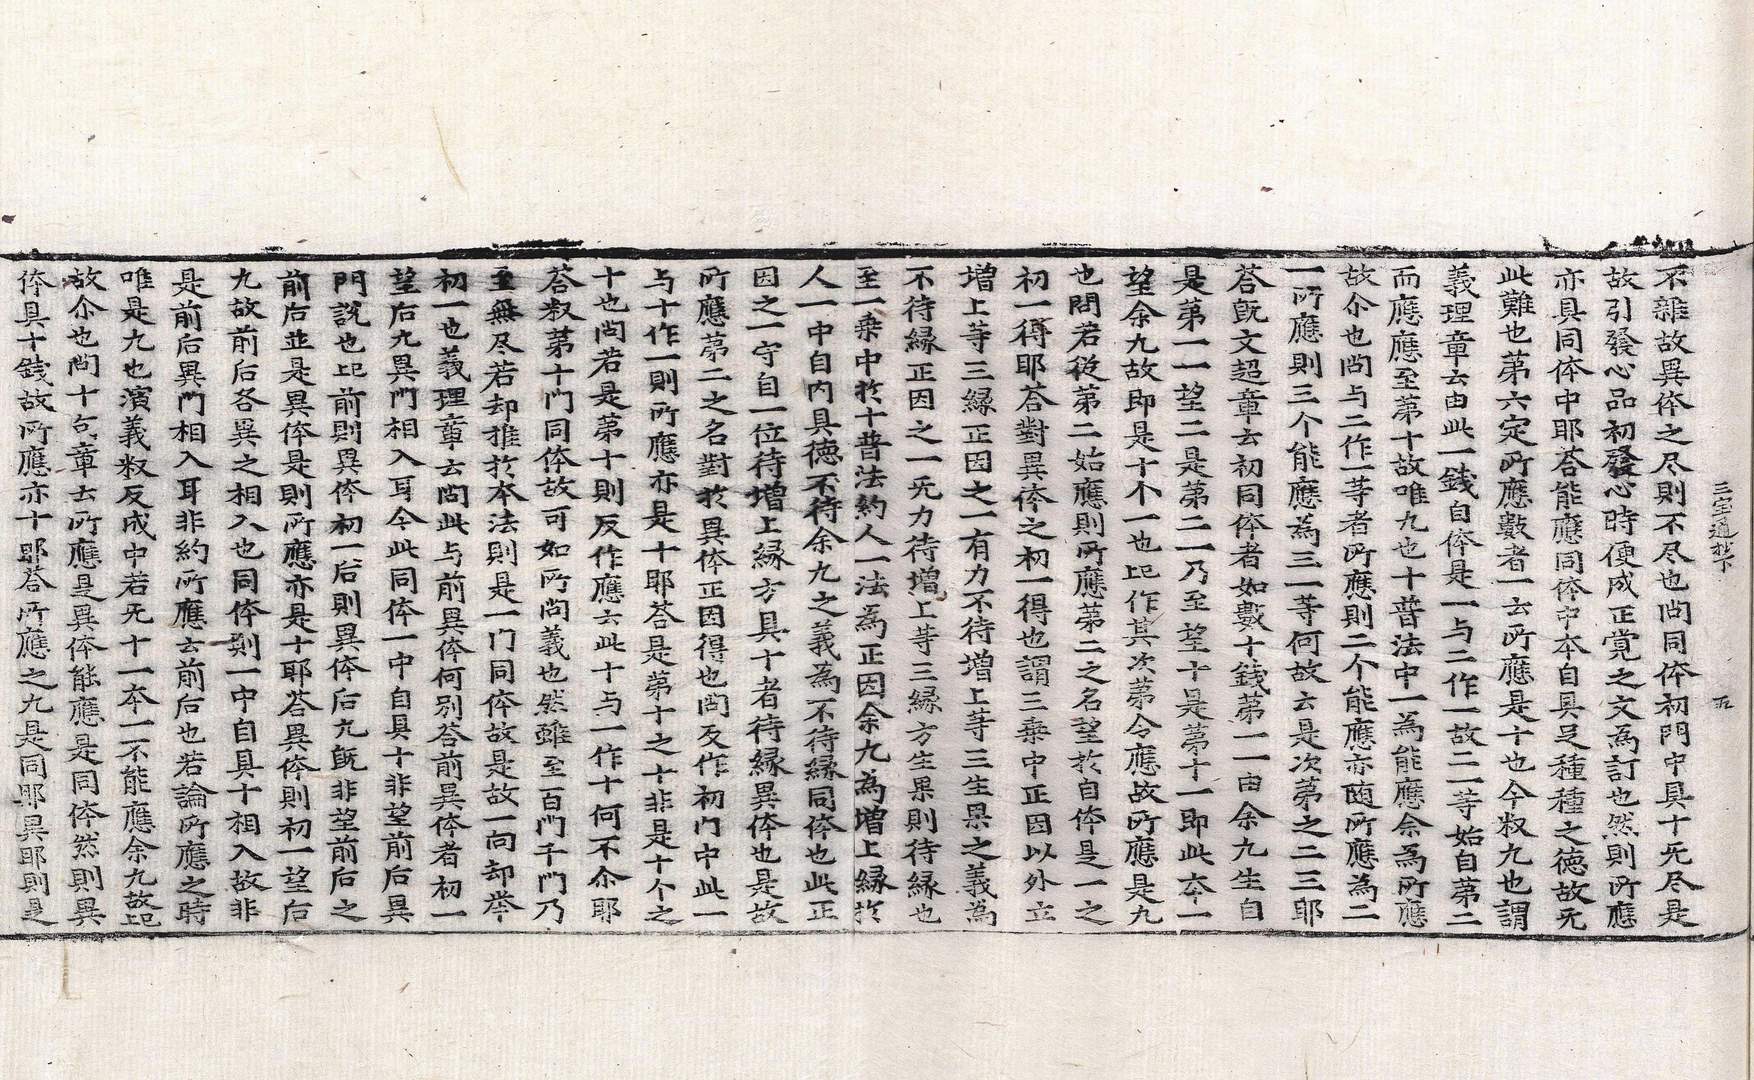 三宝通抄下　　五
不雜故異体之尽則不尽也問同体初門中具十无尽是
故引發心品初發心時便成正覚之文為訂也然則所應
亦具同体中耶荅能應同体中本自具足種種之徳故无
此難也第六定所應數者一云所應是十也今釈九也謂
義理章云由此一錢自体是一与二作一故二一等始自第二
而應應至第十故唯九也十普法中一為能應余為所應
故尒也問与二作一等者所應則二个能應亦随所應為二
一所應則三个能應為三一等何故云是次第之二三耶
荅旣文超章云初同体者如數十錢第一一由余九生自
是第一一望二是第二一乃至望十是第十一即此夲一
望余九故即是十个一也記作其次第令應故所應是九
也問若従第二始應則所應第二之名望於自体是一之
初一得耶荅對異体之初一得也謂三乗中正因以外立
増上等三縁正因之一有力不待増上等三生果之義為
不待縁正因之一无力待増上等三縁方生果則待縁也
至一乗中於十普法約人一法為正因余九為増上縁於
人一中自内具徳不待余九之義為不待縁同体也此正
因之一守自一位待増上縁方具十者待縁異体也是故
所應第二之名對於異体正因得也問反作初门中此一
与十作一則所應亦是十耶荅是第十之十非是十个之
十也问若是第十則反作應云此十与一作十何不尒耶
荅釈第十門同体故可如所问義也然雖至百門千門乃
至無尽若却推於夲法則是一门同体故是故一向却挙
初一也義理章云问此与前異体何別荅前異体者初一
望后九異門相入耳今此同体一中自具十非望前后異
門說也記前則異体初一后則異体后九旣非望前后之
前后並是異体是則所應亦是十耶荅異体則初一望后
九故前后各異之相入也同体則一中自具十相入故非
是前后異門相入耳非約所應云前后也若論所應之時
唯是九也演義釈反成中若无十一夲一不能應余九故記
故尒也问十句章云所應是異体能應是同体然則異
体具十錢故所應亦十耶荅所應之九是同耶異耶則是